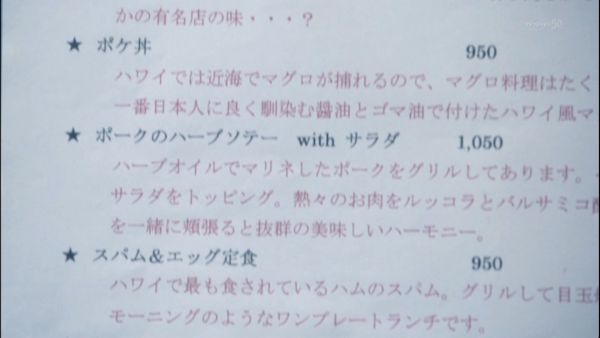 かの有名店の味・・・？
★ ポケ丼 950
ハワイでは近海でマグロが捕れるので、マグロ料理はたく
一番日本人に良く馴染む醤油とゴマ油で付けたハワイ風マ
★ ポークのハーブソテー with サラダ 1,050
ハーブオイルでマリネしたポークをグリルしてあります。
サラダをトッピング。熱々のお肉をルッコラとバルサミコ酢
を一緒に頬張ると抜群の美味しいハーモニー。
★ スパム&エッグ定食 950
ハワイで最も食されているハムのスパム。グリルして目玉
モーニングのようなワンプレートランチです。